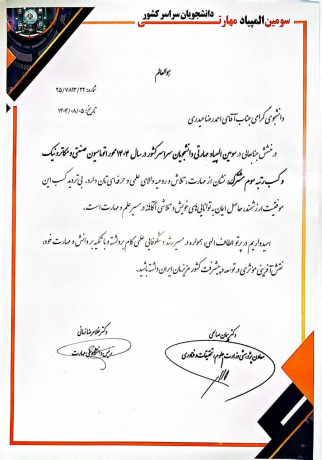 سومین المپیاد مهارتی دانشجویان سراسر کشور
هوالعالم
شماره: ۲۵/۷۸۱۳/۲۲
تاریخ: ۱۴۰۴/۰۸/۰۵
دانشجوی گرامی جناب آقای احمدرضا حیدری
درخشش جنابعالی در سومین المپیاد مهارتی دانشجویان سراسر کشور در سال ۱۴۰۴ محور اتوماسیون صنعتی و مکاترونیک
و کسب رتبه سوم مشترک، نشان از مهارت، تلاش و روحیه والای علمی و حرفه‌ای تان دارد. بی‌تردید کسب این
موفقیت ارزشمند، حاصل ایمان به توانایی‌های خویش و تلاشی آگاهانه در مسیر علم و مهارت است.
امید داریم در پرتو الطاف الهی، همواره در مسیر رشد و شکوفایی علمی گام برداشته و با تکیه بر دانش و مهارت خود،
نقش آفرینی مؤثری در توسعه و پیشرفت کشور عزیزمان ایران داشته باشید.
دکتر غلامرضا زمانی
رئیس دانشگاه ملی مهارت
دکتر پیمان صالحی
معاون پژوهشی وزارت علوم، تحقیقات و فناوری